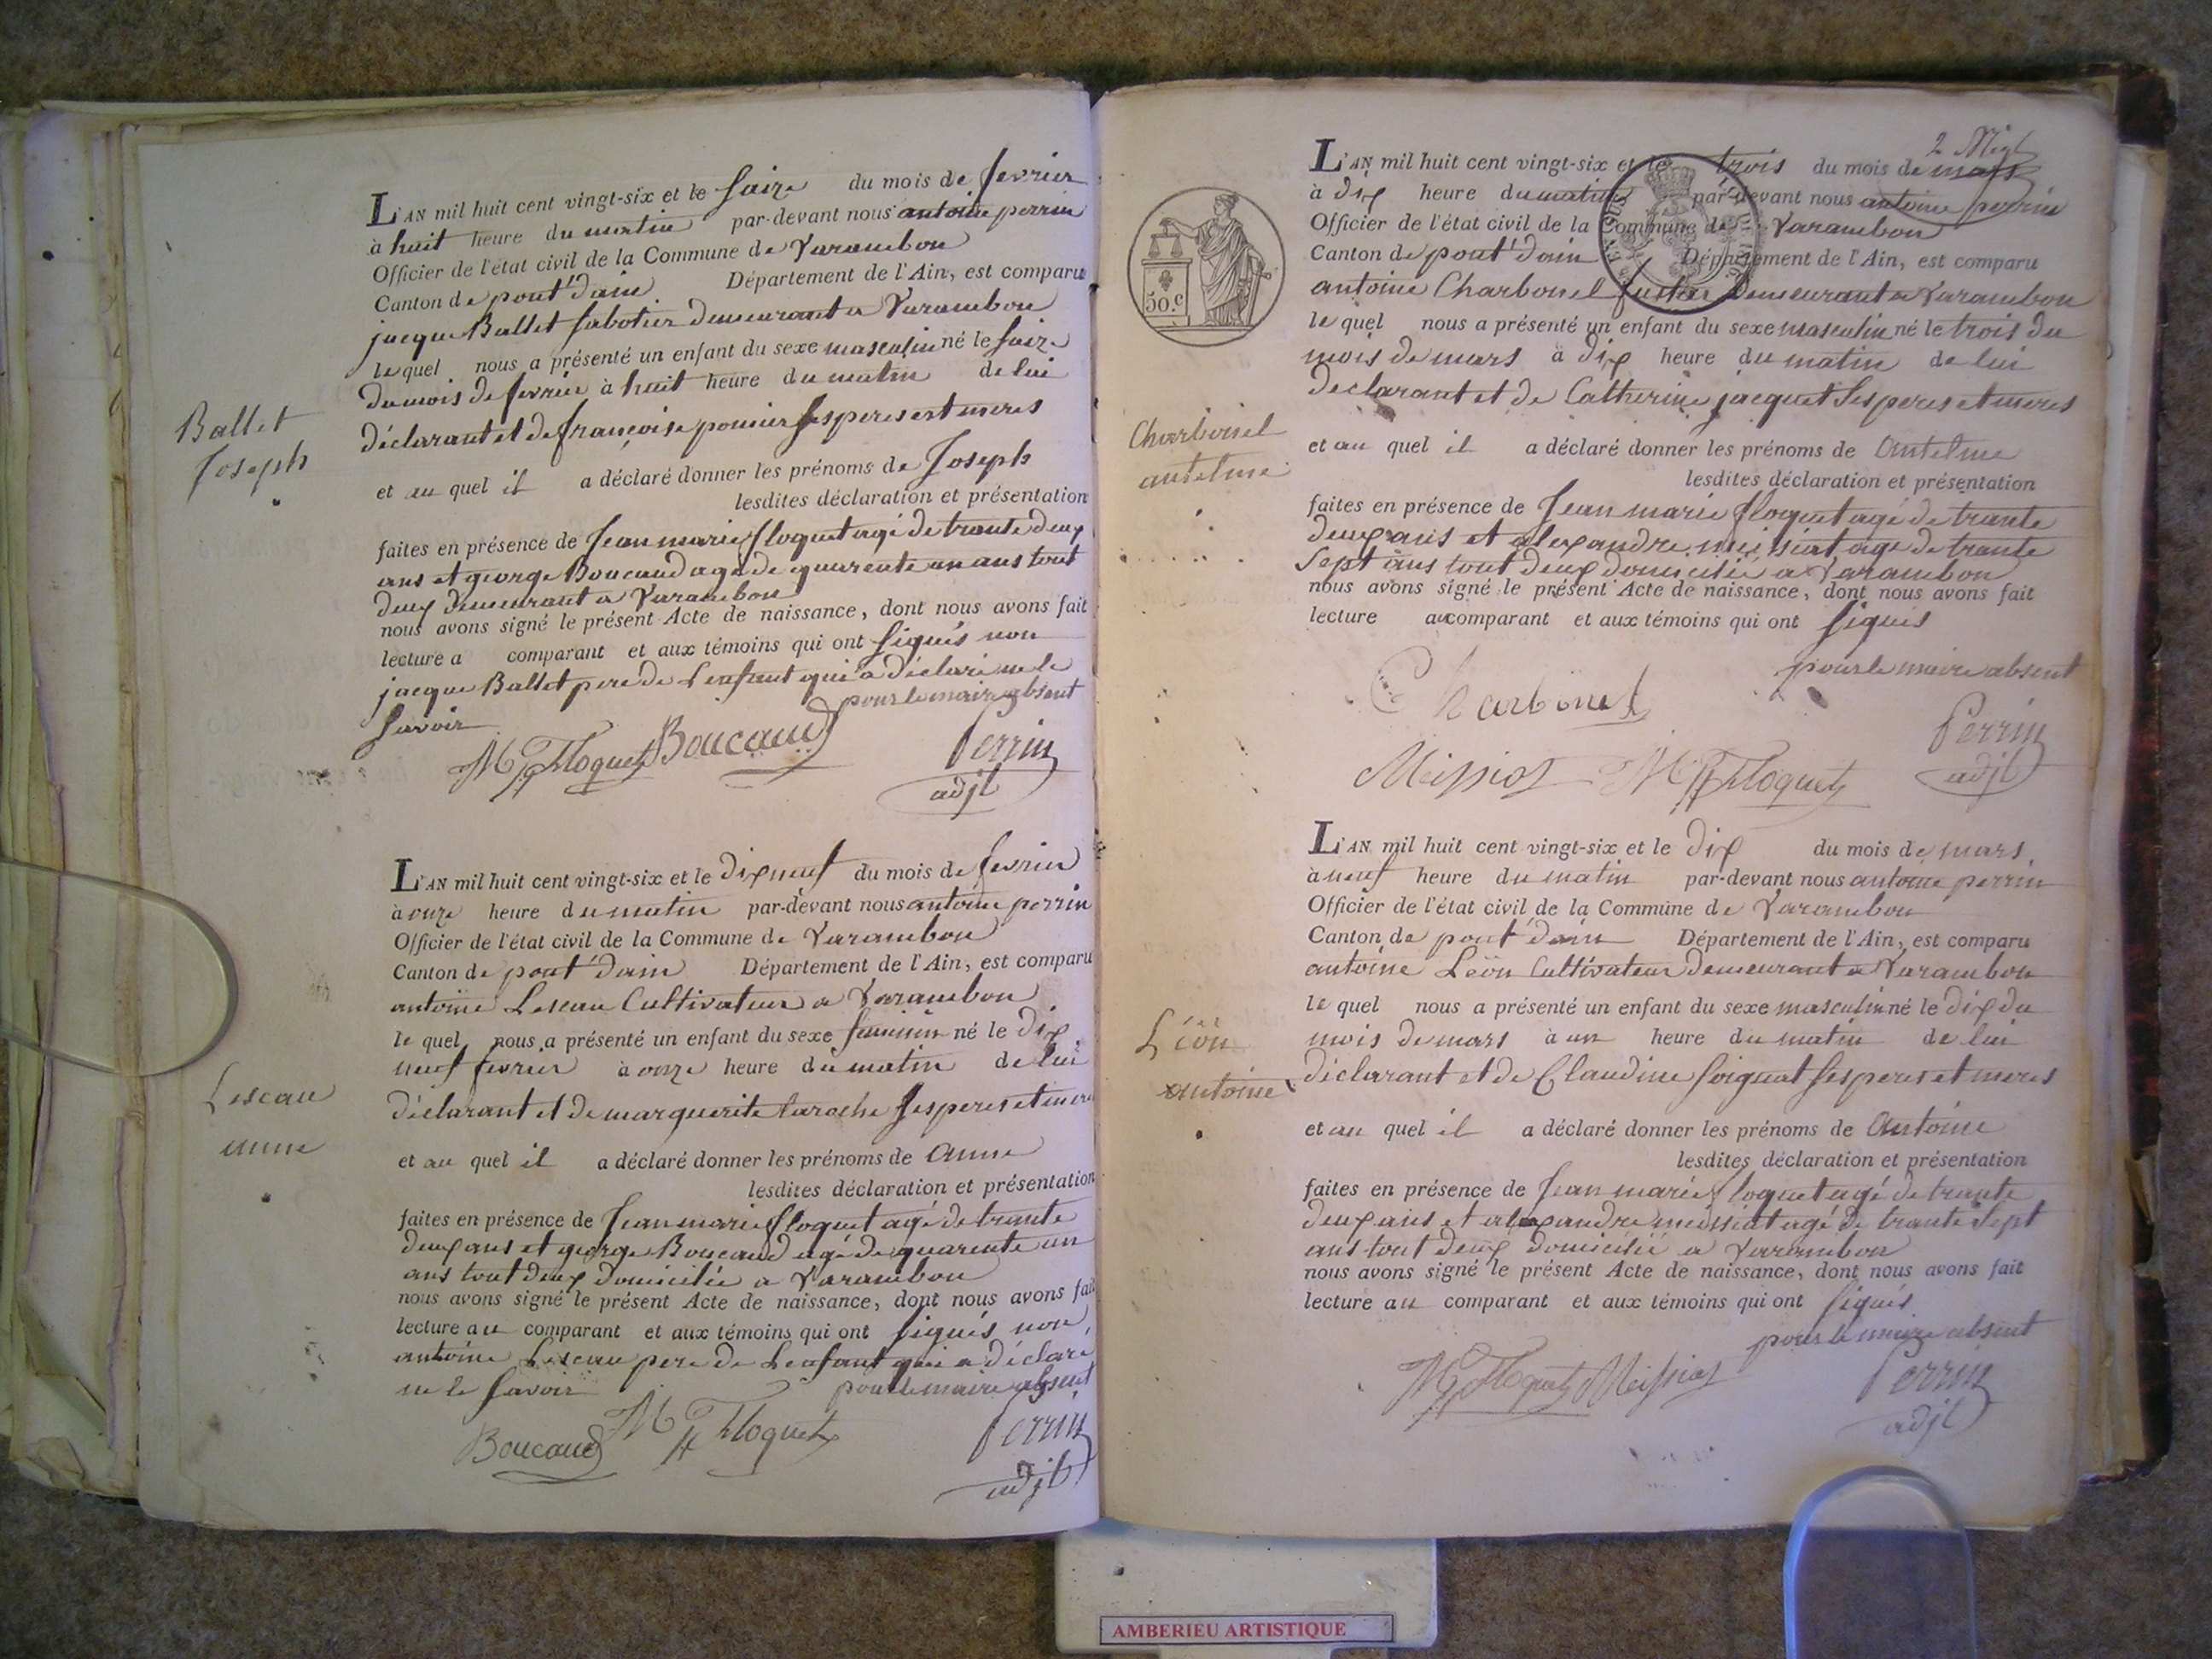 L'AN mil huit cent vingt-six et le saize du mois de fevrier
à huit heure du matin par-devant nous antoine perrin
Officier de l'état civil de la Commune de Varambon
Canton de pont d'ain Département de l'Ain, est comparu
jacque Ballet sabotier demeurant a Varambon
le quel nous a présenté un enfant du sexe masculin né le saize
du mois de fevrier à huit heure du matin de lui
déclarant et de françoise ses peres et meres
et au quel il a déclaré donner les prénoms de Joseph
lesdites déclaration et présentation
faites en présence de Jean marie floquet agé de trante deux
ans et george Boucaud agé de quarente un ans tout
deux demeurant a Varambon
nous avons signé le présent Acte de naissance, dont nous avons fait
lecture a comparant et aux témoins qui ont signés non
jacque Ballet pere de Lenfant qui a déclaré ne le
savoir pour le maire absent
M Floquet Boucaud Perrin
adjt
Ballet
Joseph
L'AN mil huit cent vingt-six et le dix neuf du mois de fevrier
à onze heure du matin par-devant nous antoine perrin
Officier de l'état civil de la Commune de Varambon
Canton de pont d'ain Département de l'Ain, est comparu
antoine Leseau Cultivateur a Varambon
le quel nous a présenté un enfant du sexe feminin né le dix
neuf fevrier à onze heure du matin de lui
déclarant et de marguerite laroche ses peres et mere
et au quel il a déclaré donner les prénoms de anne
lesdites déclaration et présentation
faites en présence de Jean marie floquet agé de trante
deux ans et george Boucaud agé de quarente un
ans tout deux domicilié a Varambon
nous avons signé le présent Acte de naissance, dont nous avons fait
lecture au comparant et aux témoins qui ont signés non
antoine Leseau pere de Lenfant qui a déclaré
ne le savoir pour le maire absent
Boucaud M Floquet Perrin
adjt
Leseau
anne
2
L'AN mil huit cent vingt-six et le trois du mois de mars
à dix heure du matin par-devant nous antoine perrin
Officier de l'état civil de la Commune de Varambon
Canton de pont d'ain Département de l'Ain, est comparu
antoine Charbonel demeurant a Varambon
le quel nous a présenté un enfant du sexe masculin né le trois du
mois de mars à dix heure du matin de lui
declarant et de Catherine jacquet ses peres et meres
et au quel il a déclaré donner les prénoms de antelme
lesdites déclaration et présentation
faites en présence de Jean marie floquet agé de trante
deux ans et alexandre meissiat agé de trante
sept ans tout deux domicilié a Varambon
nous avons signé le présent Acte de naissance, dont nous avons fait
lecture au comparant et aux témoins qui ont signés
pour le maire absent
Charbonel
Perrin
Meissiat M Floquet adjt
50.c
Charbonel
antelme
L'AN mil huit cent vingt-six et le dix du mois de mars
à neuf heure du matin par-devant nous antoine perrin
Officier de l'état civil de la Commune de Varambon
Canton de pont d'ain Département de l'Ain, est comparu
antoine Léön Cultivateur demeurant a Varambon
le quel nous a présenté un enfant du sexe masculin né le dix du
mois de mars à un heure du matin de lui
déclarant et de Claudine soignat ses peres et meres
et au quel il a déclaré donner les prénoms de antoine
lesdites déclaration et présentation
faites en présence de Jean marie floquet agé de trante
deux ans et alexandre meissiat agé de trante sept
ans tout deux domicilié a Varambon
nous avons signé le présent Acte de naissance, dont nous avons fait
lecture au comparant et aux témoins qui ont signés
pour le maire absent
M Floquet Meissiat Perrin
adjt
Léön
antoine
AMBERIEU ARTISTIQUE